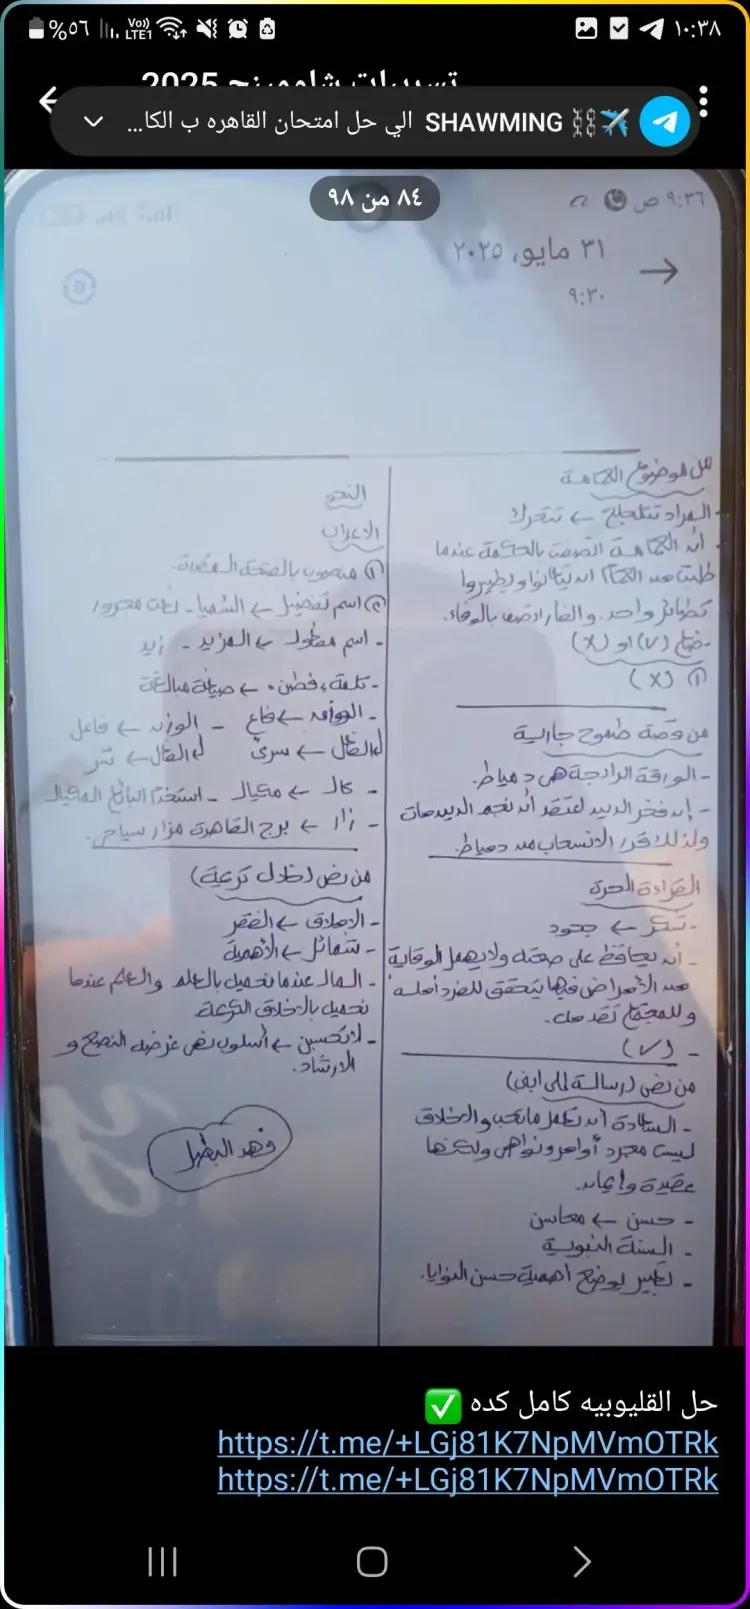 ١٠:٣٨
%٥٦
Vo))
LTE1
تسريبات شاومينج 2025
SHAWMING الي حل امتحان القاهره ب الكا...
٨٤ من ٩٨
٩:٣٦ ص
٣١ مايو، ٢٠٢٥
٩:٣٠
الحمامة
- المراد تتلجلج ← تتحرك
أن الحمامة اتصفت بالحكمة عندما
طلبت من الحمام أن يتعاونوا ويطيروا
كطائر واحد. والفأر اتصف بالوفاء.
- ضع (√) أو (X)
① (X)
من قصة طموح جارية
- الورقة الرابحة هي دمياط.
- إن فخر الدين اعتقد أن نجم الدين مات
ولذلك قرر الانسحاب من دمياط.
القراءة الحرة
- تنكر ← جحود
- أن يحافظ على صحته ولا يهمل الوقاية
من الأمراض فبها يتحقق للفرد أمله
وللمجتمع تقدمه.
- (√)
من نص (رسالة إلى ابني)
- السعادة أن تعمل ما تحب والأخلاق
ليست مجرد أوامر ونواهي ولكنها
عقيدة وإيمان.
- حسن ← محاسن
- السنة النبوية
- تعبير يوضح أهمية حسن النوايا.
النحو
الإعراب
① منصوب بالفتحة المقدرة.
② اسم تفضيل ← العليا - نعت مجرور
- اسم مفعول ← المزيد - زيد
- ثقة، فطن ← صيغة مبالغة
- الوزن ← فاع - الوزن ← فاعل
المثال ← سرى المثال ← سر
- كال ← مكيال - استخدم البائع المكيال
- زار ← برج القاهرة مزار سياحي.
من نص (خلال كريمة)
- الإملاق ← الفقر
- شمائل ← الأهمية
- المال عندما نحميه بالعلم والعلم عندما
نحميه بالأخلاق الكريمة
- لا تحسبن ← أسلوب نهي غرضه النصح و
الإرشاد.
فهد البطل
حل القليوبيه كامل كده
https://t.me/+LGj81K7NpMVmOTRk
https://t.me/+LGj81K7NpMVmOTRk